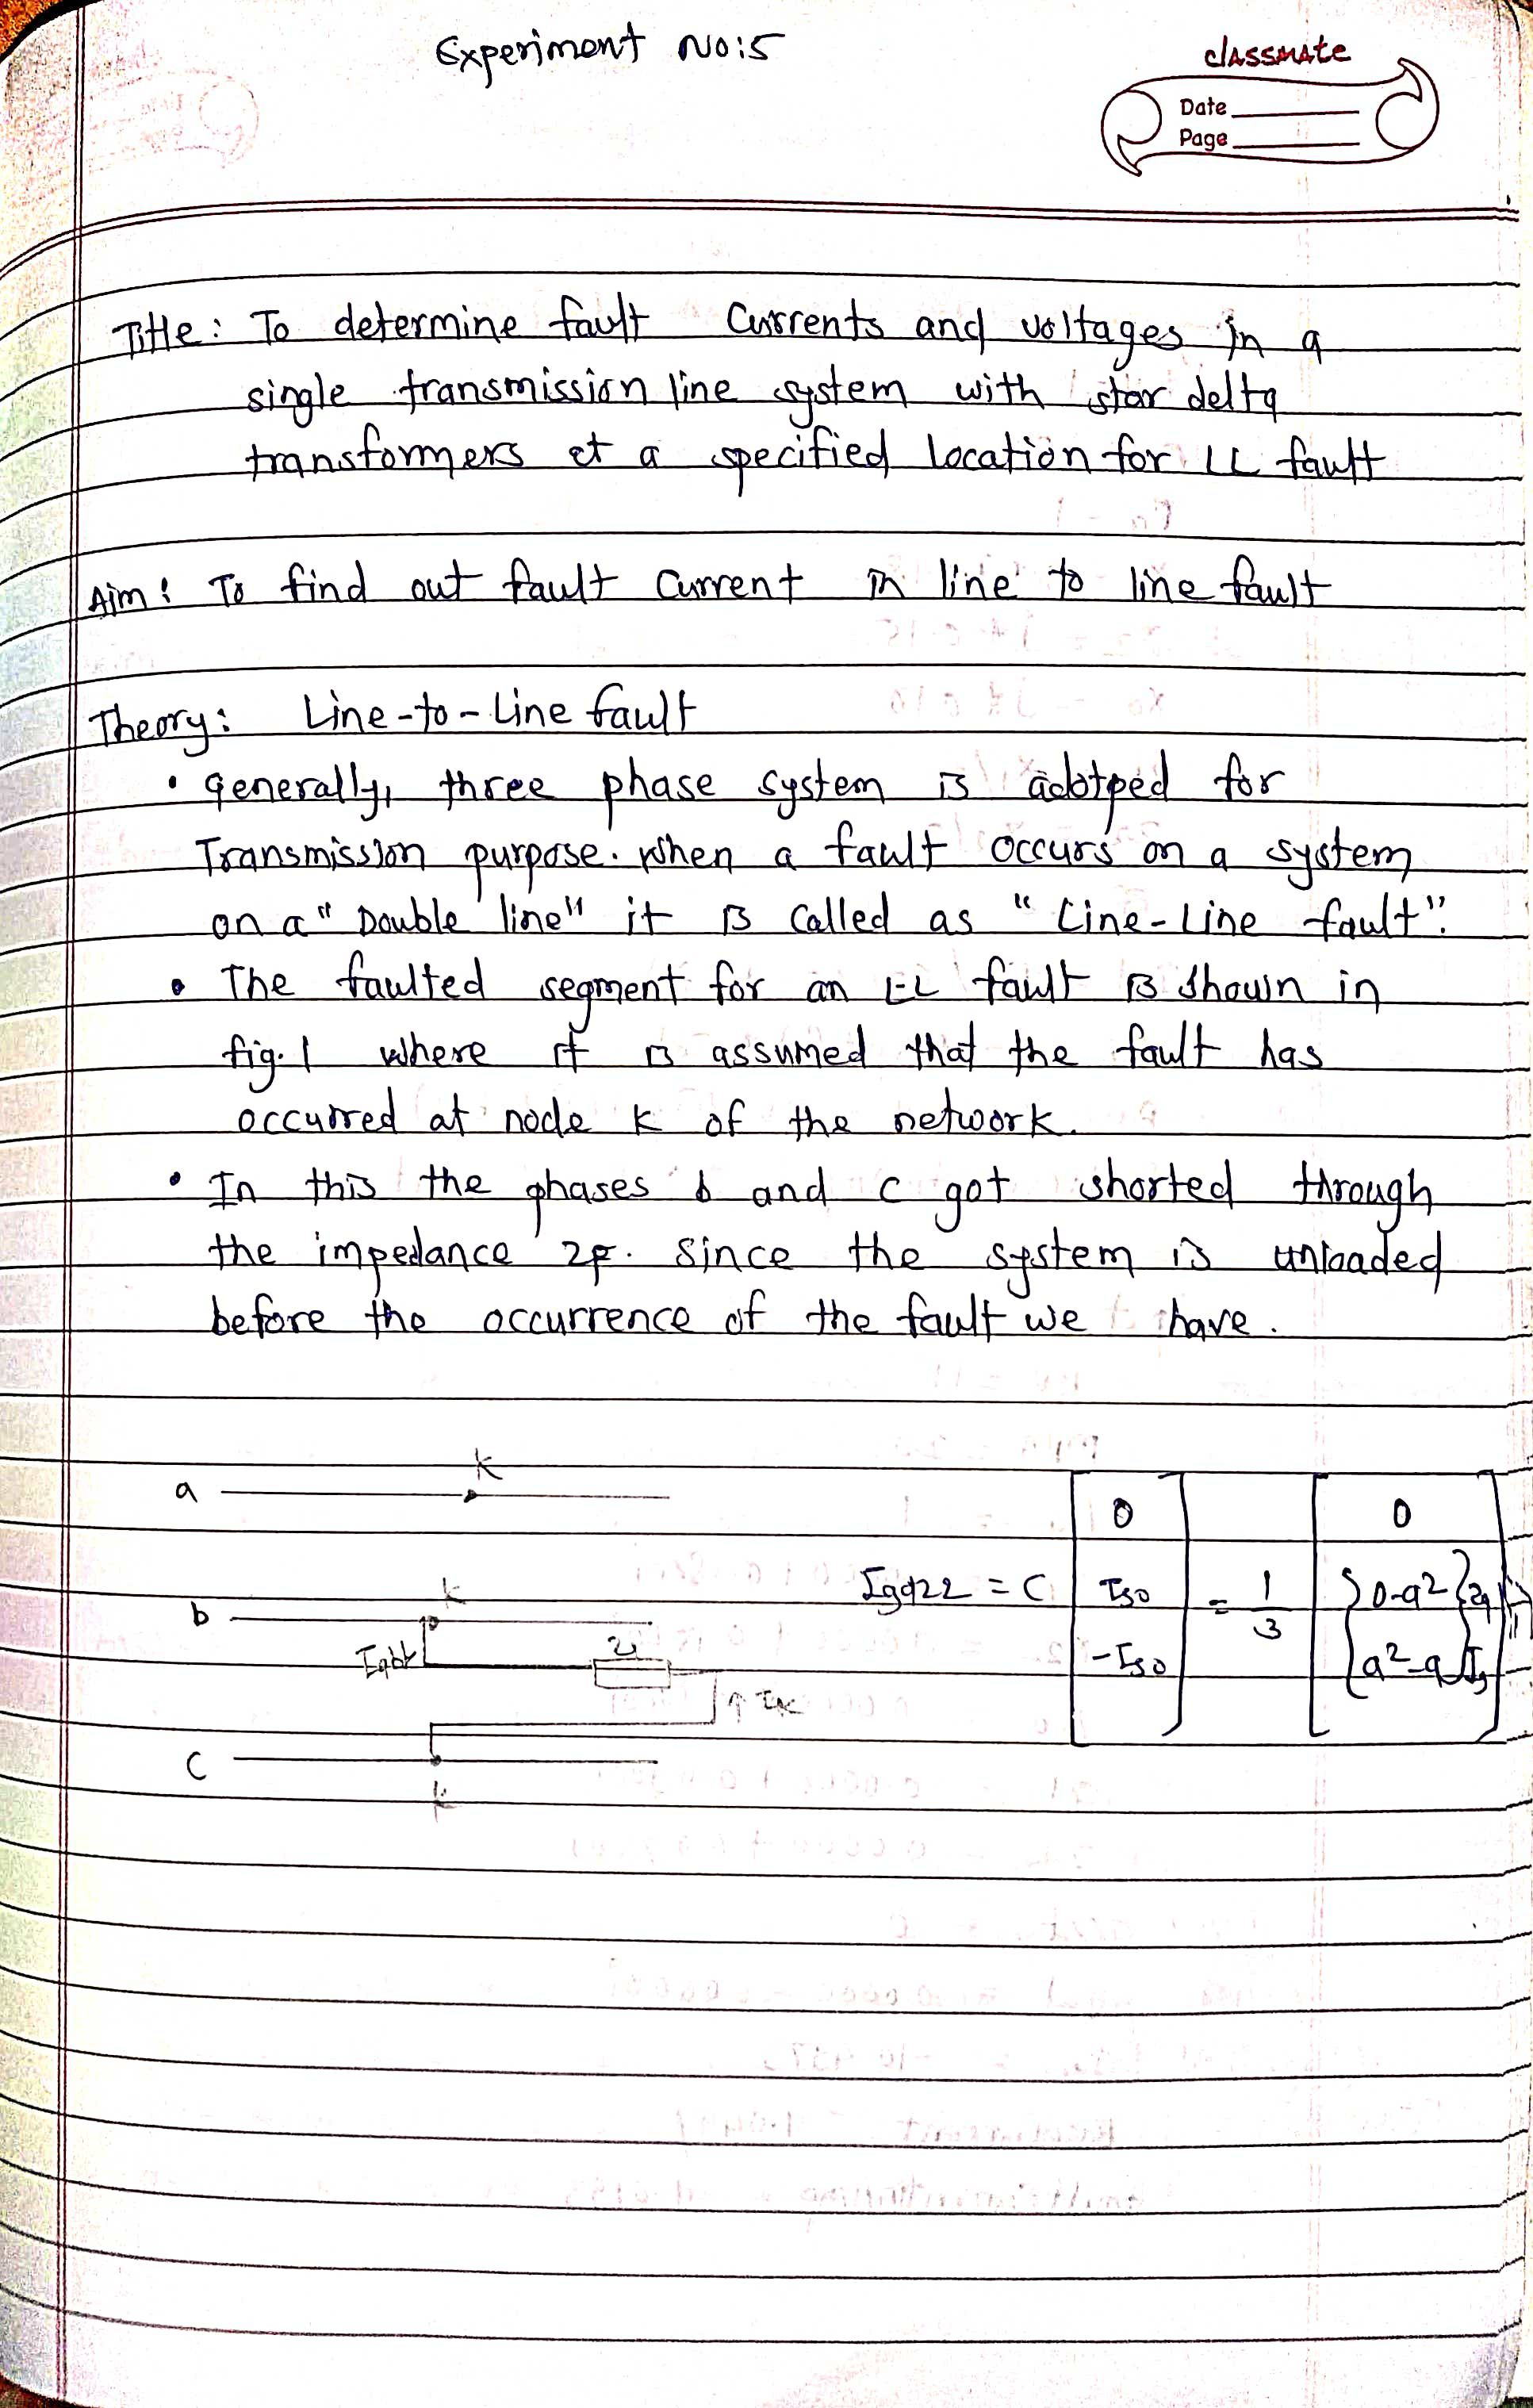 Experiment No:5
classmate
Date
Page
Title: To determine fault Currents and voltages in a
single transmission line system with star delta
transformers at a specified location for LL fault
Aim: To find out fault Current in line to line fault
Theory: Line-to-Line fault
• Generally, three phase system is adotped for
Transmission purpose. When a fault occurs on a system
on a "Double line" it is called as "Line-Line fault".
• The faulted segment for an L-L fault is shown in
fig.1 where it is assumed that the fault has
occurred at node k of the network.
• In this the phases b and c got shorted through
the impedance zf. Since the system is unloaded
before the occurrence of the fault we have.
a k
b k
c
k
0
-
= 1/3
0